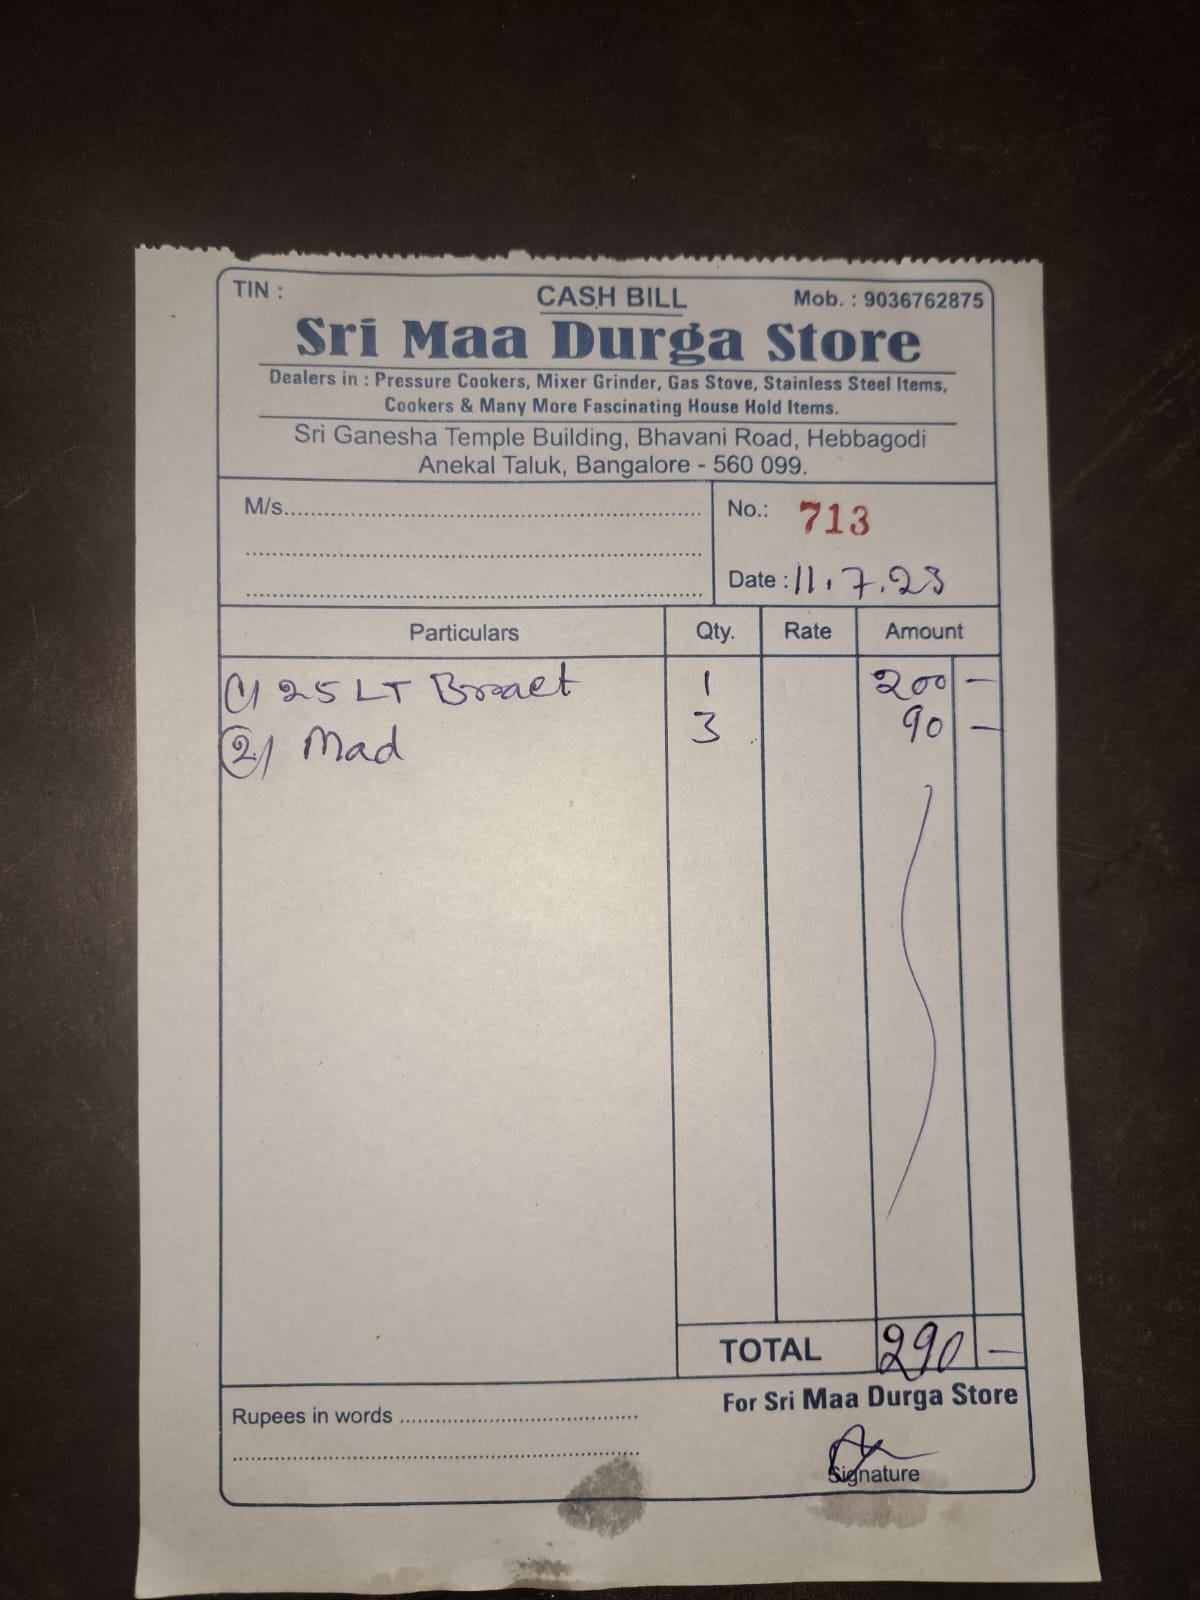 TIN :
CASH BILL
Mob. : 9036762875
Sri Maa Durga Store
Dealers in : Pressure Cookers, Mixer Grinder, Gas Stove, Stainless Steel Items,
Cookers & Many More Fascinating House Hold Items.
Sri Ganesha Temple Building, Bhavani Road, Hebbagodi
Anekal Taluk, Bangalore - 560 099.
M/s.
No.: 713
Date : 11.7.23
Particulars Qty. Rate Amount
(1) 25 LT 1 200 —
(2) Mad 3 90 —
TOTAL 290 —
Rupees in words
For Sri Maa Durga Store
Signature